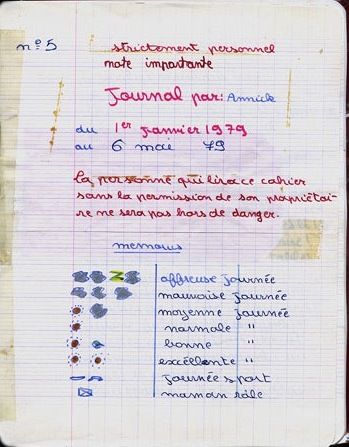 n°5
strictement personnel
note importante
Journal par: Annick
du 1er janvier 1979
au 6 mai 79
La personne qui lira ce cahier
sans la permission de son propriétai-
re ne sera pas hors de danger.
memours
affreuse journée
mauvaise journée
moyenne journée
normale "
bonne "
excéllente "
journée sport
maman râle